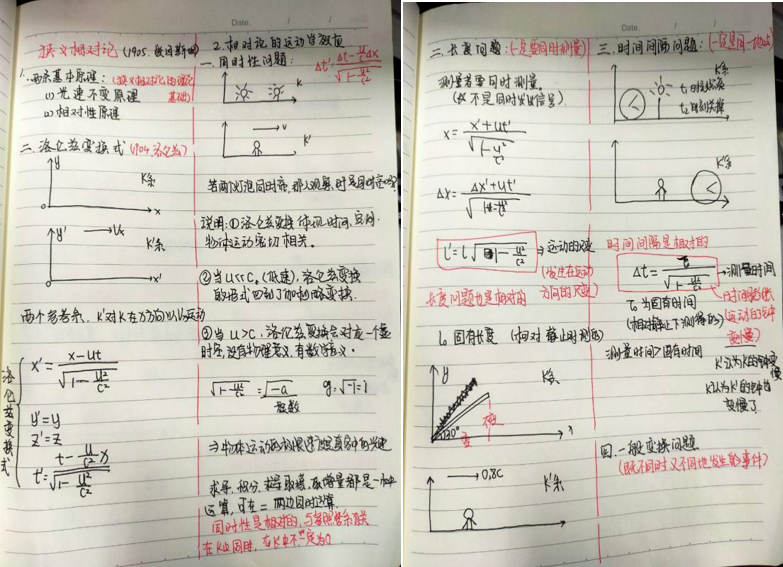 Date.
狭义相对论 (1905. 爱因斯坦)
一. 两条基本原理: (狭义相对论的理论基础)
(1) 光速不变原理
(2) 相对性原理
二. 洛仑兹变换式 (1904. 洛仑兹)
y
K系
o
x
y'
→ Ux
K'系
o
x'
两个参考系, K'对K在X方向以
运动
洛仑兹变换式
x' = x-ut / √1-u²/c²
y'=y
z'=z
t' = t - u/c² x / √1-u²/c²
2. 相对论的运动学效应
一. 同时性问题:
Δt' = Δt - u/c² Δx / √1-u²/c²
K
→ v
K'
若两灯泡同时亮, 那人观察, 时是同时亮吗?
说明: ① 洛仑兹变换体现时间、空间、
物体运动密切相关。
② 当 u<<C, (低速), 洛仑兹变换
的形式回到了伽利略变换.
③ 当 u>C, 洛仑兹变换会对应一个虚
时空, 没有物理意义, 有数学意义。
√1-u²/c² = √-a
虚数
√-1=i
⇒ 物体运动的极限速度是真空中的光速
求导、积分、
都是一种
运算, 可在=两边同时运算.
同时性是相对的, 与参照系有关
在K中同时, 在K'中不一定为0
Date.
二. 长度问题: (一定要同时测量)
测量者要同时测量.
(不是同时发出信号)
x = x'+ut' / √1-u²/c²
Δx = Δx'+ut' / √1-u²/c²
l' = l √1-u²/c²
→ 运动的尺度
(发生在运动
方向的尺度)
长度问题也是相对的
l₀ 固有长度 (相对静止时测的)
y
K系
30°
变
不变
x
→ 0.8C
K'系
三. 时间间隔问题: (一定是同一地点)
K系
t₁ 时刻亮
t₂ 时刻关掉
K'系
时间间隔是相对的
Δt = τ / √1-u²/c²
→ 测量时间
τ₀ 为固有时间
(相对静止下测得的)
时间膨胀
(运动的钟
变慢)
测量时间>固有时间
K'认为K的钟变慢
K认为K'的钟
变慢了
四. 一般变换问题
(既不同时又不同地发生的事件)